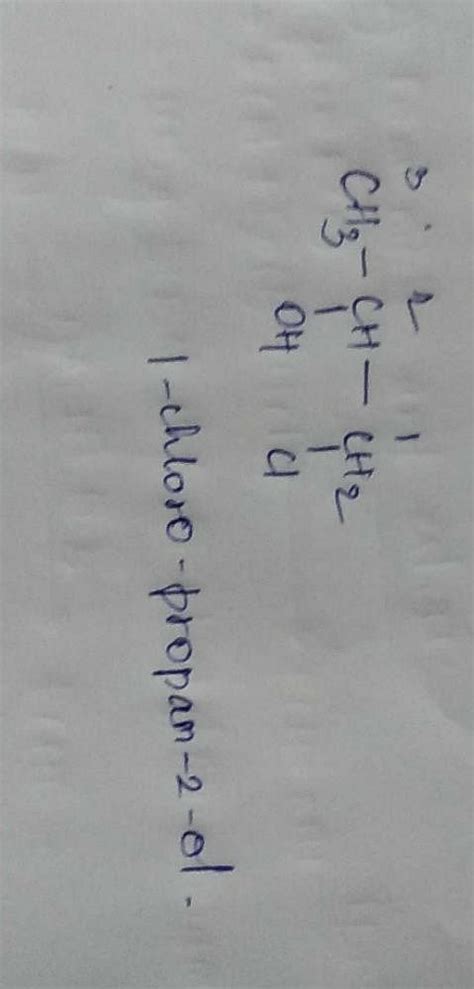 3 2 1
CH3 – CH – CH2
OH Cl
1-chloro-propan-2-ol.